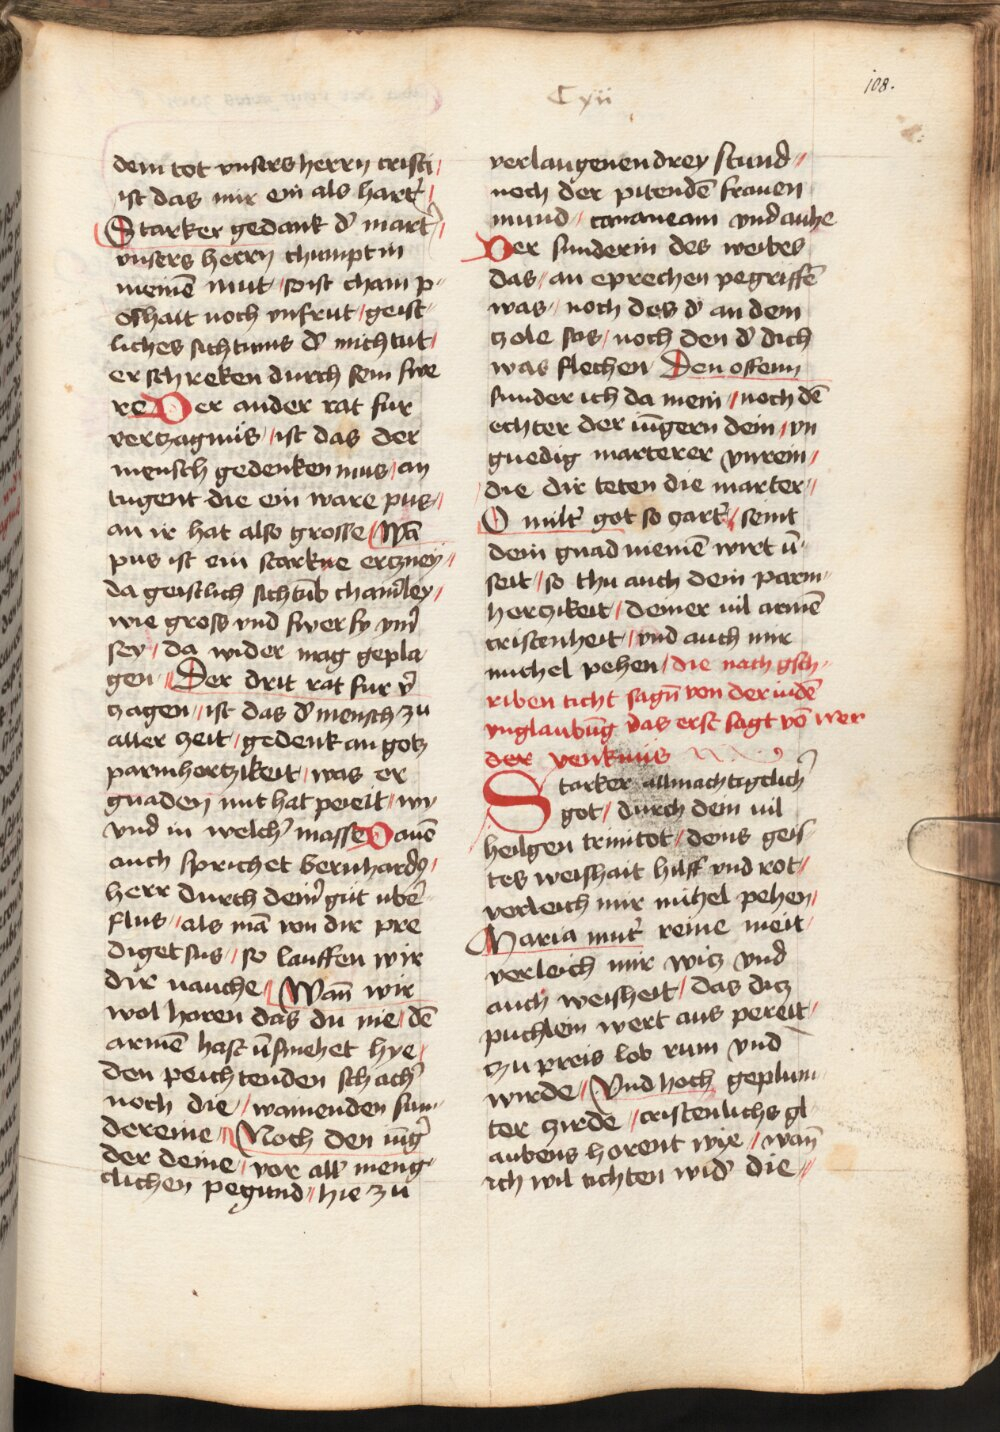 Cxii
108.
dem tot vnsers herrn cristi /
ist das mir ein als hart /
Starker gedank d' mart' /
vnsers herrn chumpt in
meinē mut / so ist cham p-
oshait noch vnfrut / geist-
liches sichtums d' mich tut /
erschreken durch sein swe
re Der ander rat fur
vertzagnüs / ist das der
mensch gedenken mus / an
tugent die ein ware pus /
an ir hat also grosse / Wā
pus ist ein starkue ertzney /
da geistlich sichtūb cham'ley /
wie gross vnd swer sy ym'
sey / da wider mag gepla
gen // Der drit rat fur v'
zagen / ist das d' mensch zu
aller zeit / gedenk an gotz
parmhertzikeit / was er
gnaden mit hat pereit / wy
vnd in welch' masse Dauē
auch sprichet bernhard9 /
herr durch dein' güt ub'e
flus / als mā von dir pre
diget sus / so lauffen wir
dir nauche / Wañ wir
wol horen das du nie / dē
armē hast v̄smehet hye /
den peichtenden schach'
noch die / wainenden sun-
dereine / Noch den iūg'
der deine / vor all' meng-
clichen pegund / hie zu
verlaugenen drey stund /
noch der pitendē frauen
mund / cananeam vnd auhe
Der sunderin des weibes
das / an eprechen pegriffē
was / noch des d' an dem
zole sas / noch den d' dich
was flechen Den offenn
sunder ich da mein / noch dē
echter der iūgern dein / vn
gnedig marterer vnrein /
die dir teten die marter /
O milt' got so zart' / seint
dein gnad meinē wirt v̄-
seit / so thu auch dein parm-
hertzikeit / deiner vil armē
cristenheit / vnd auch mir
michel pehen / die nach gsch-
riben ticht sagn̄ von der iudē
vnglaubūg das erst sagt vō wer
der venknüs
Starker allmachtigclich'
got / durch dein vil
heilgen trinitot / deins geis-
tes weishait hilff vnd rot /
verleich mir michel pehen /
Maria mut' reine meit /
verleich mir witz vnd
auch weisheit / das ditz
puchlein wert aus pereit /
zu preis lob rum vnd
wirde / Vnd hoch geplum-
ter zirde / cristenlichs gl-
aubens horent wye / wañ
ich wil tichten wid' die //